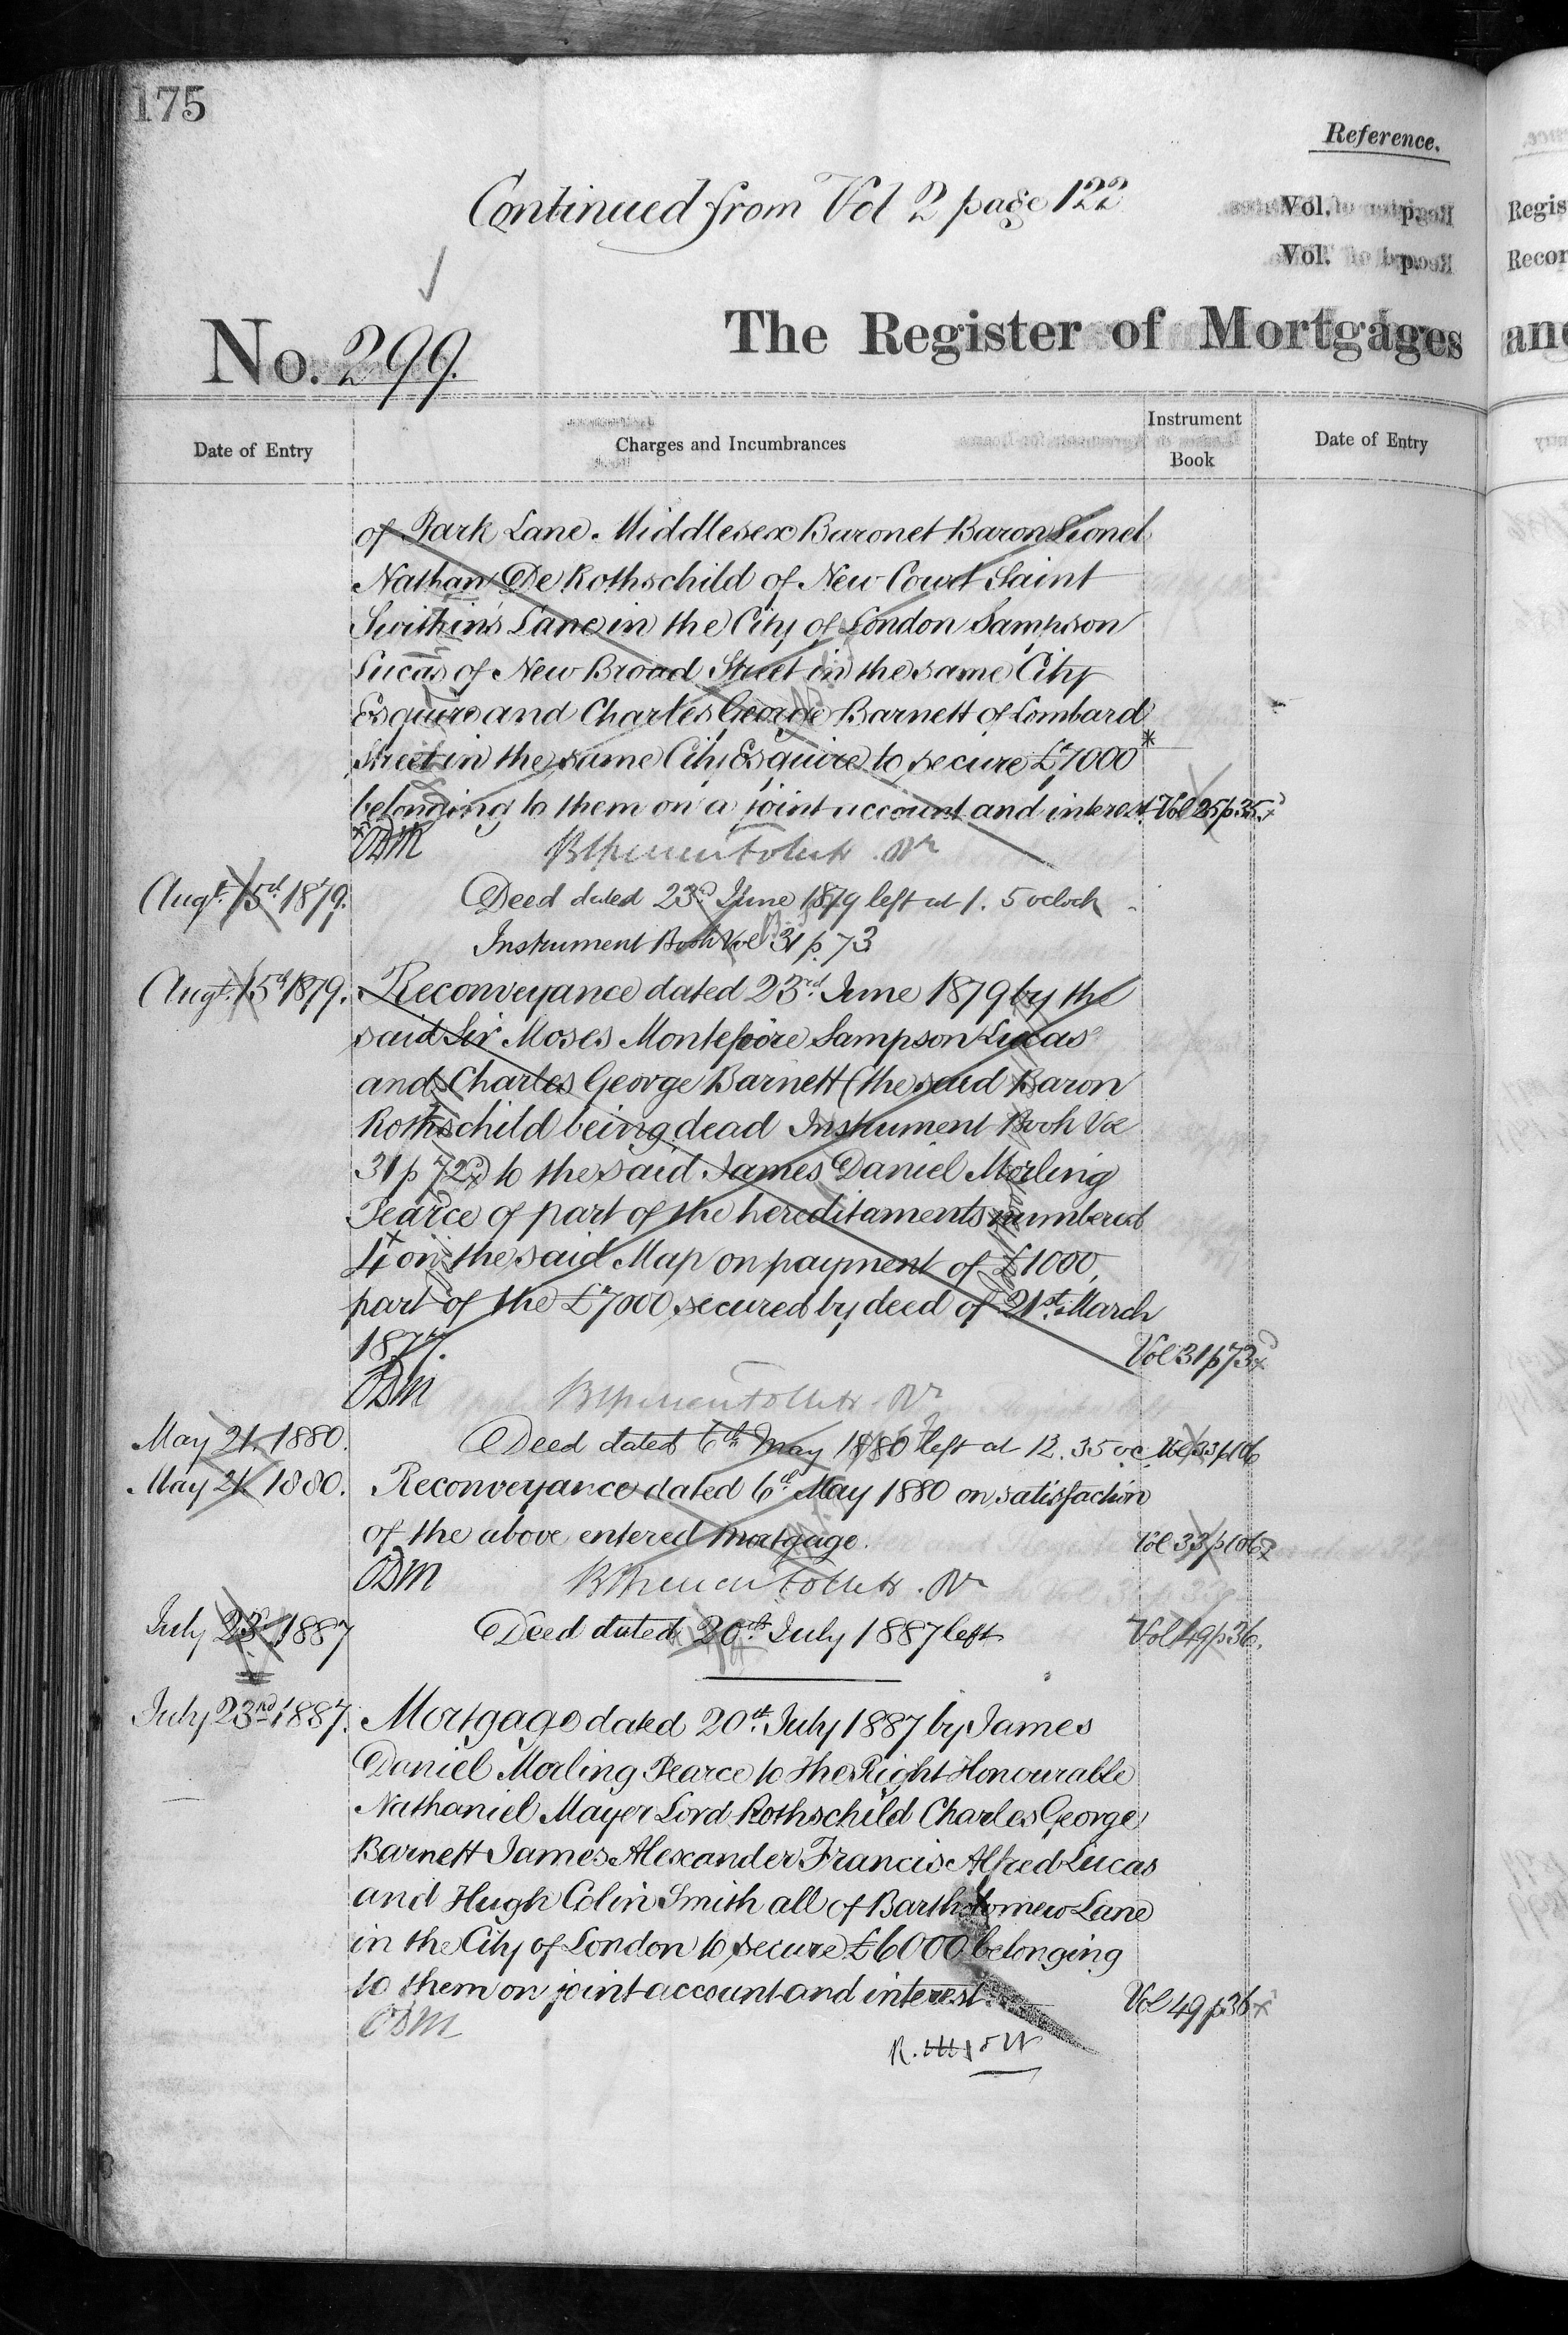 175
Reference.
Continued from Vol 2 page 122
Vol. p.
Vol. p.
No. 299.
The Register of Mortgages
Date of Entry
Charges and Incumbrances
Instrument Book
Date of Entry
of Park Lane. Middlesex Baronet Baron Lionel
Nathan De Rothschild of New Court Saint
Swithin's Lane in the City of London Sampson
Lucas of New Broad Street in the same City
Esquire and Charles George Barnett of Lombard
Street in the same City Esquire to secure £7000 *
belonging to them on a joint account and interest. Vol 25 p 35.
ODM
Augt. 15th 1879. Deed dated 23rd June 1879 left at 1. 5 oclock
Instrument Book Vol 31 p. 73
Augt. 15th 1879. Reconveyance dated 23rd June 1879 by the
said Sir Moses Montefiore Sampson Lucas
and Charles George Barnett (the said Baron
Rothschild being dead Instrument Book Vol
31 p 72) to the said James Daniel Morling
Pearce of part of the hereditaments numbered
4 on the said Map on payment of £1000,
part of the £7000 secured by deed of 21st March
1877. Vol 31 p 73
ODM
May 21. 1880. Deed dated 6th May 1880 left at 12. 35 oc. Vol 33 p 106
May 21. 1880. Reconveyance dated 6th May 1880 on satisfaction
of the above entered mortgage. Vol 33 p 106
ODM
July 23rd 1887 Deed dated 20th July 1887 left Vol 49 p 36.
July 23rd 1887. Mortgage dated 20th July 1887 by James
Daniel Morling Pearce to The Right Honourable
Nathaniel Mayer Lord Rothschild Charles George
Barnett James Alexander Francis Alfred Lucas
and Hugh Colin Smith all of Bartholomew Lane
in the City of London to secure £6000 belonging
to them on joint account and interest. Vol 49 p 36
ODM
Regis
Recor
and